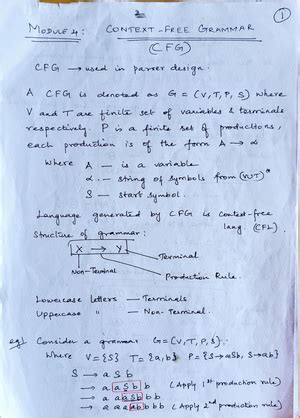 2
1
MODULE 4: CONTEXT-FREE GRAMMAR
(CFG)
CFG → used in parser design.
A CFG is denoted as G = (V, T, P, S) where
V and T are finite set of variables & terminals
respectively. P is a finite set of productions,
each production is of the form A → α
Where A — is a variable
α — string of symbols from (VUT)*
S — start symbol.
Language generated by CFG is context-free
lang. (CFL)
Structure of grammar:
X → Y
Terminal
Non-Terminal
Production Rule.
Lowercase letters — Terminals
Uppercase " — Non-Terminal.
eg1 Consider a grammar G=(V,T,P,S).
Where V={S} T={a,b} P={S→aSb, S→ab}
S → aSb
→ aaSbb (Apply 1st production rule)
→ aaaSbbb (Apply 1st production rule)
→ aaaabbbb (Apply 2nd production rule)